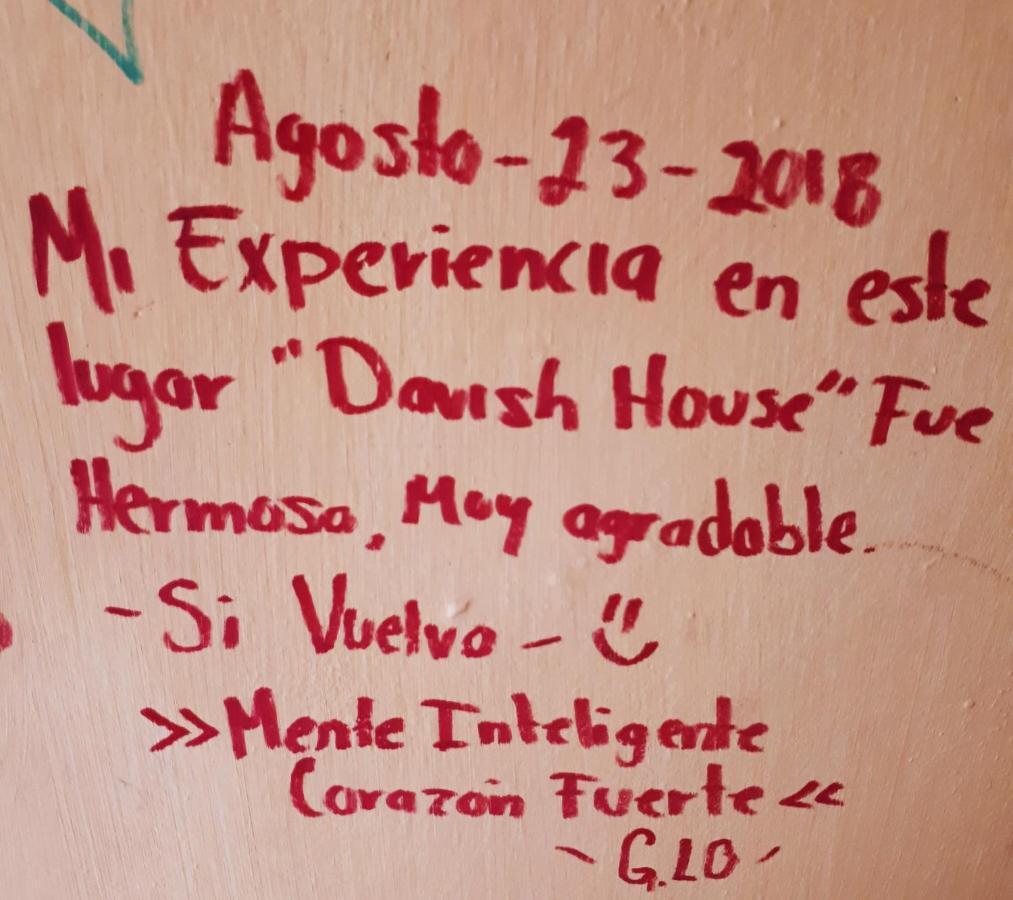 Agosto-23-2018
Mi Experiencia en este
lugar "Danish House" Fue
Hermosa, Muy agradable.
-Si Vuelvo-
>>Mente Inteligente
Corazón Fuerte<<
-G.LO-